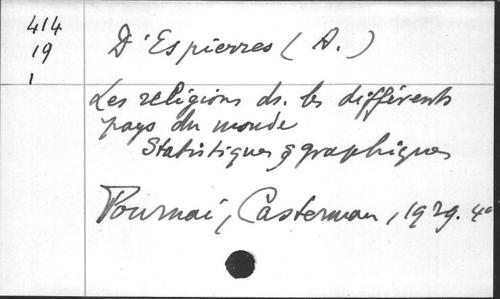 414
19
1
D'Espierres (A.)
Les religions ds. les différents
pays du monde
Statistiques graphiques
Tournai, Casterman, 1929. 4°